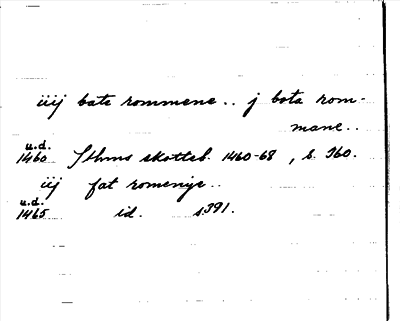 iiij bate rommene.. j bota rom-
mane..
u.d.
1460 Sthms skotteb. 1460-68, s. 360.
iij fat romenije..
u.d.
1465 id. s 391.